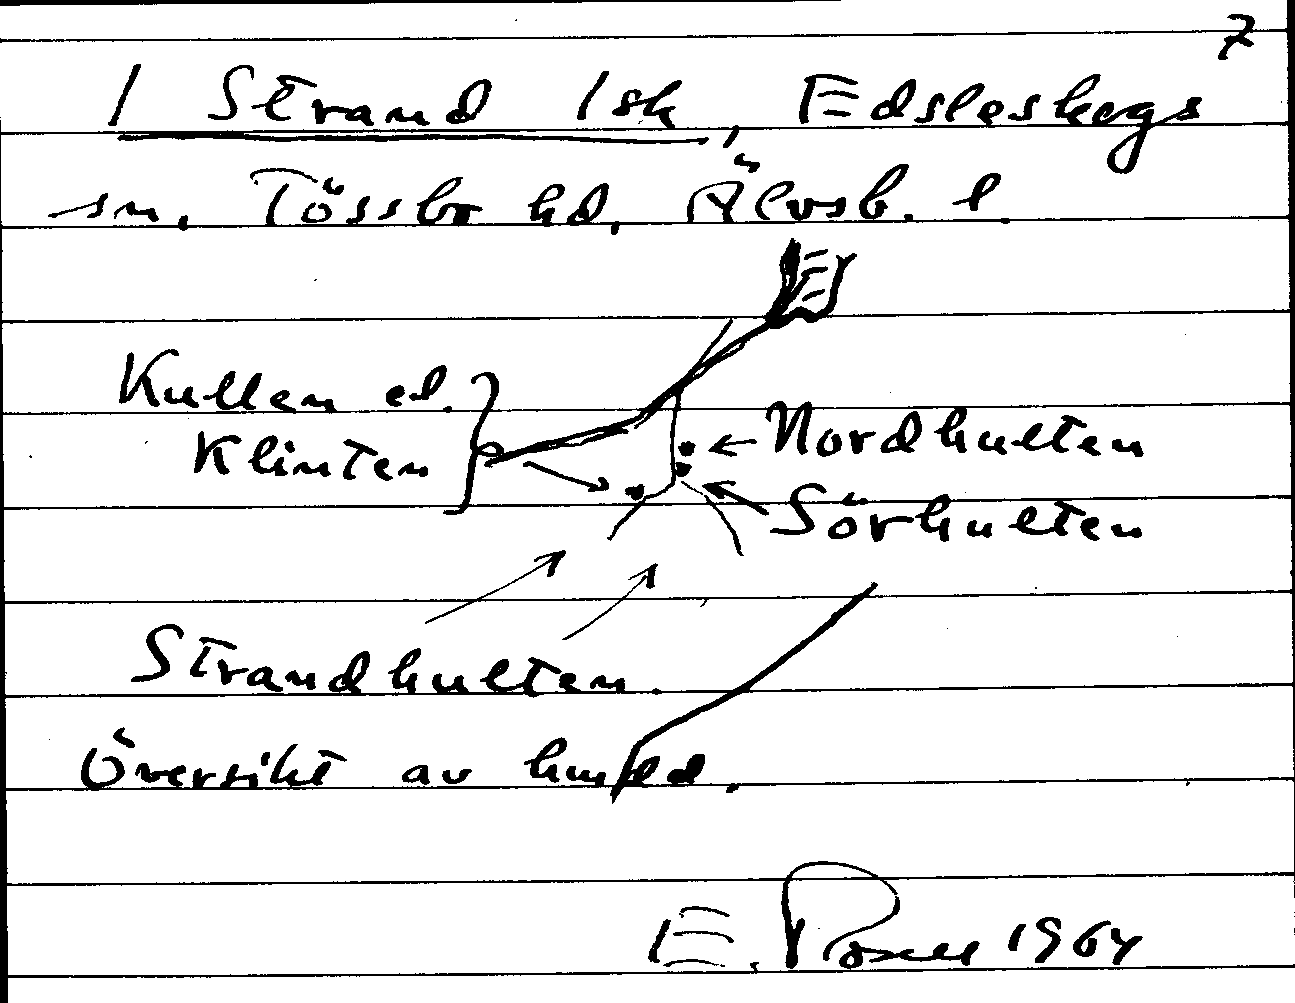 7
1 Strand 1sk, Edsleskogs
sn, Tössbo hd, Älvsb. l.
Kullen el.
Klinten
Nordhulten
Sörhulten
Strandhulten.
Översikt av
E. 1964